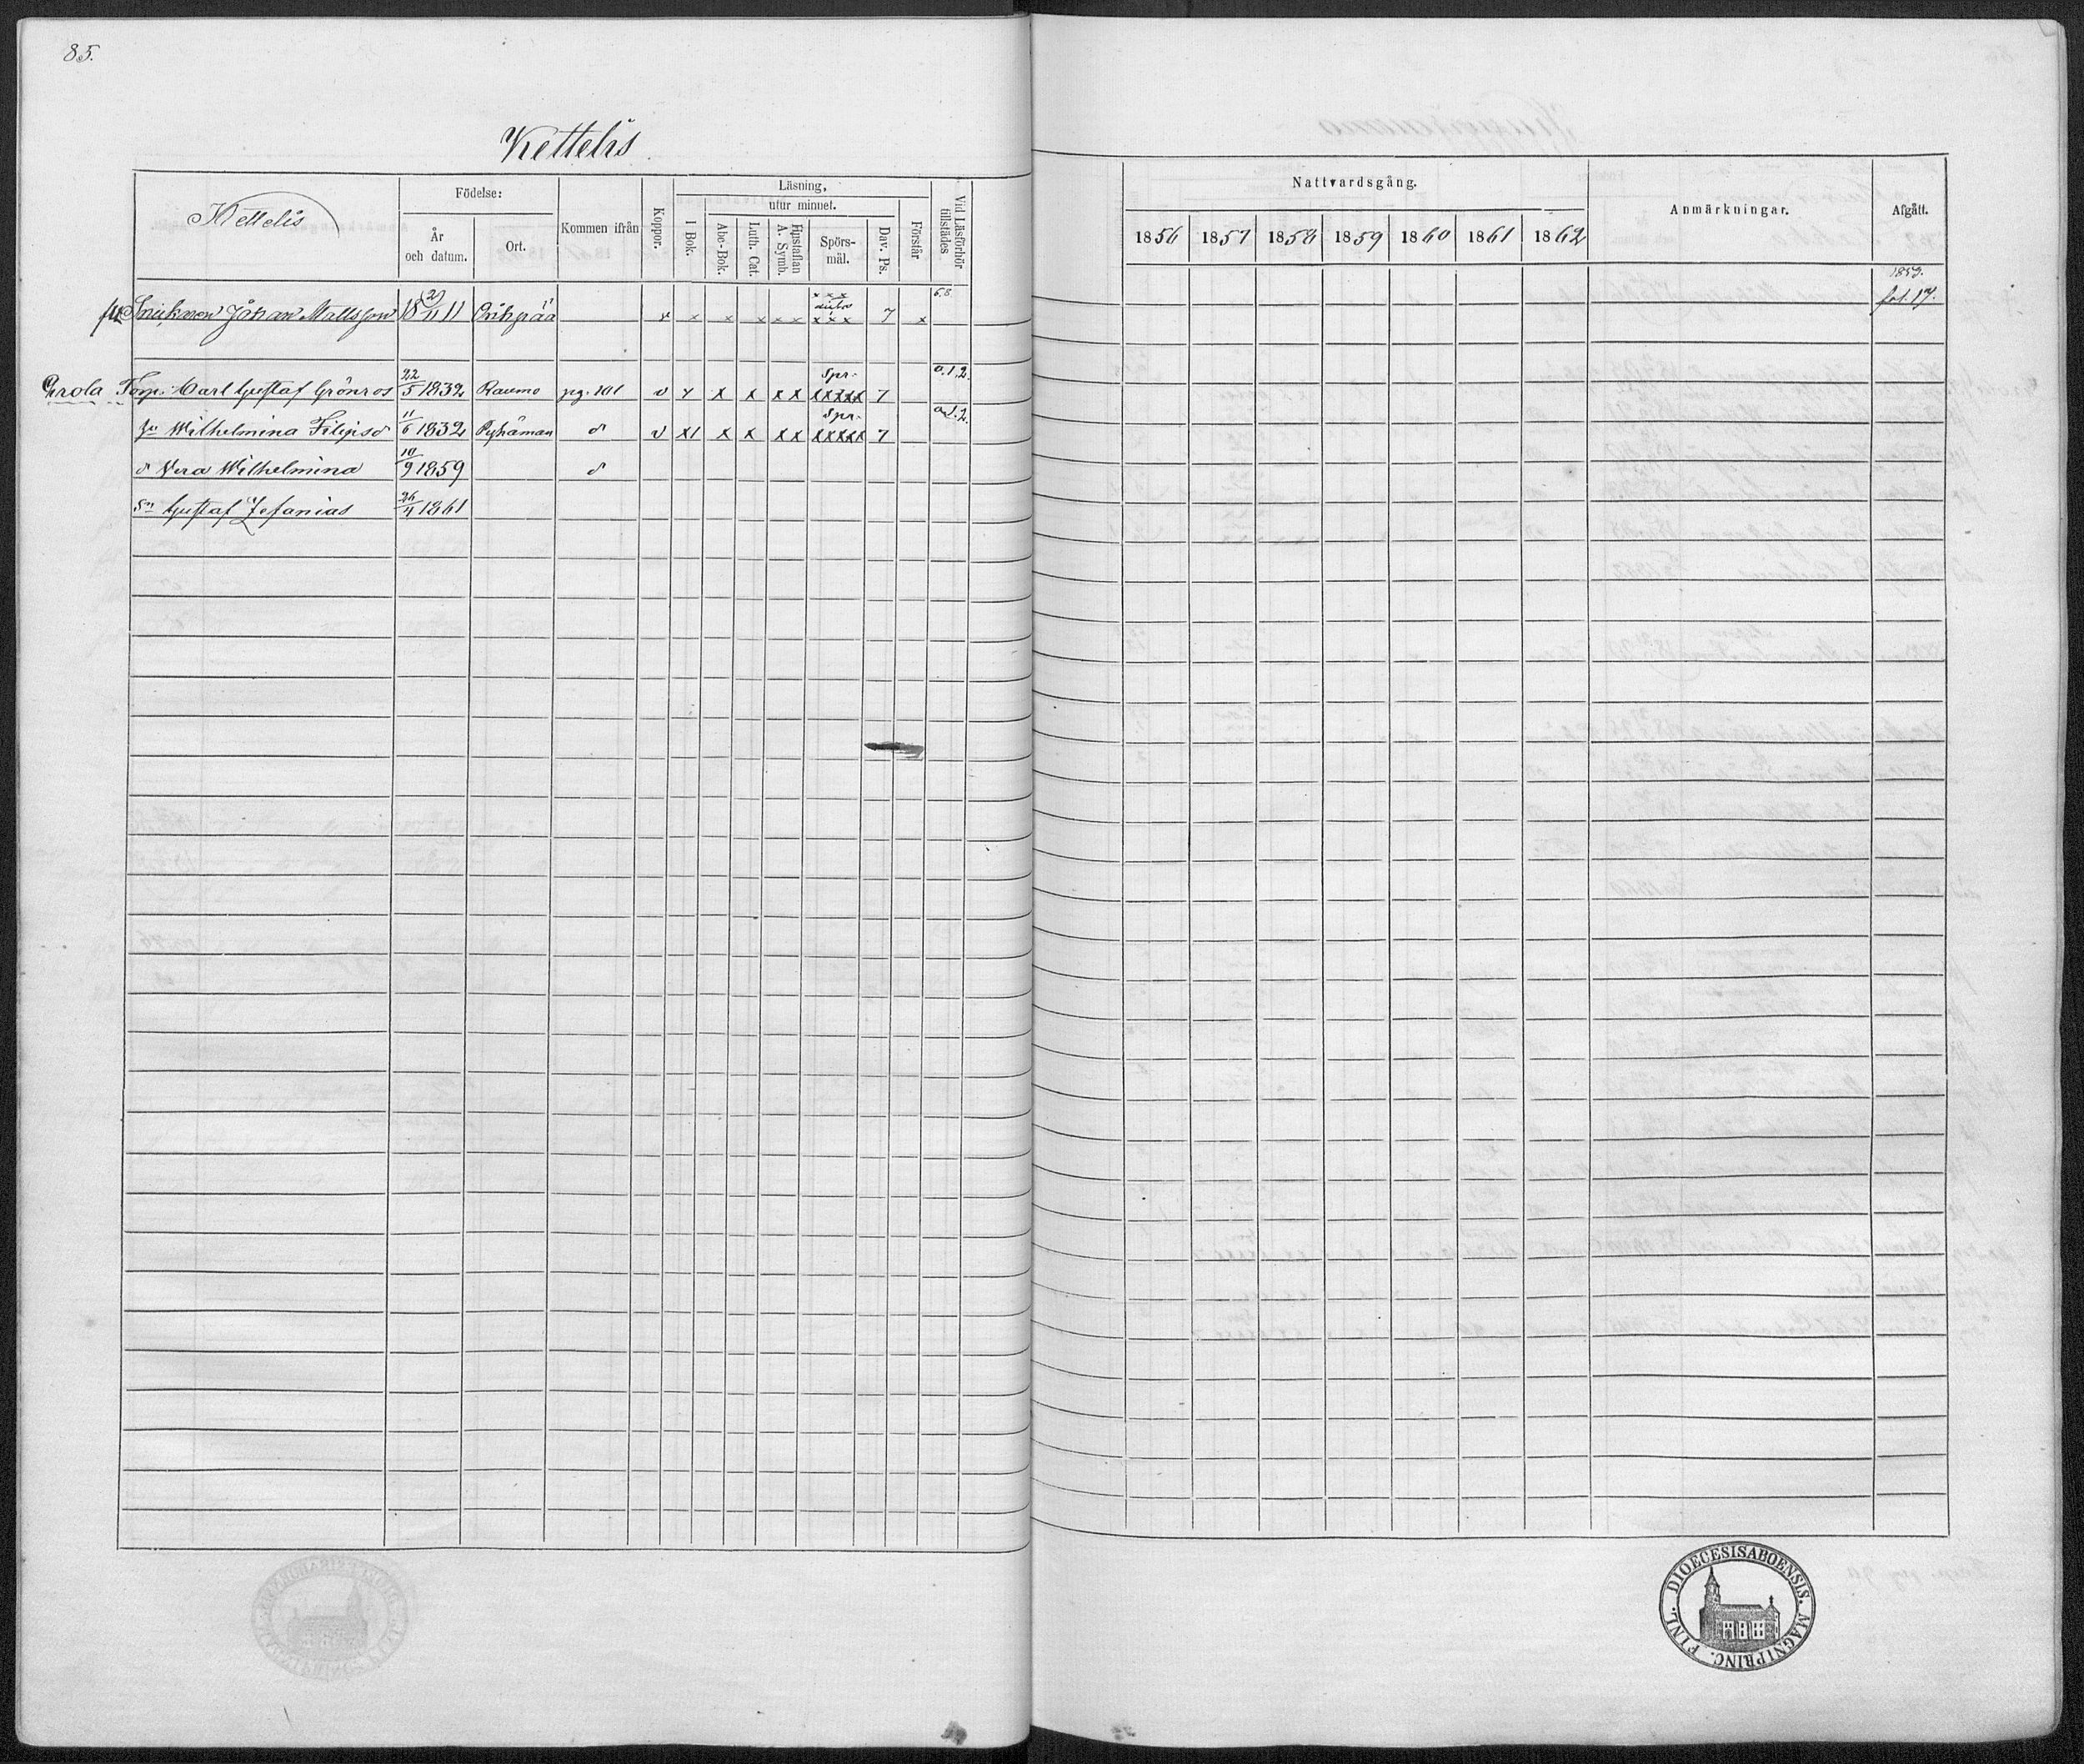 85.
Kettelis
Kettelis
Födelse:
År och datum.
Ort.
Kommen ifrån
Koppor.
Läsning,
I Bok.
utur minnet.
Abc-Bok.
Luth. Cat.
Hustaflan A. Symb.
Spörsmål.
Dav. Ps.
Förstår
Vid Läsförhör tillstädes
Nattvardsgång.
1856 1857 1858 1859 1860 1861 1862
Anmärkningar.
Afgått.
1859.
Johan Mattsson 18 2/11 11 x x x x x x x x x 7 x 6.8. fol. 17.
Carl Gustaf Grönros 22/5 1832 Raumo pg. 101 v x x x x x Spr. x x x x x 7 0.1.2.
Wilhelmina Filipsd 11/6 1832 Pyhämaa d v x1 x x x x Spr. x x x x x 7 0.1.2.
d Vera Wilhelmina 10/9 1859 d
Sn Gustaf Zefanias 26/11 1861
FINL. DIOECESIS ABOENSIS. MAGNI PRINC.